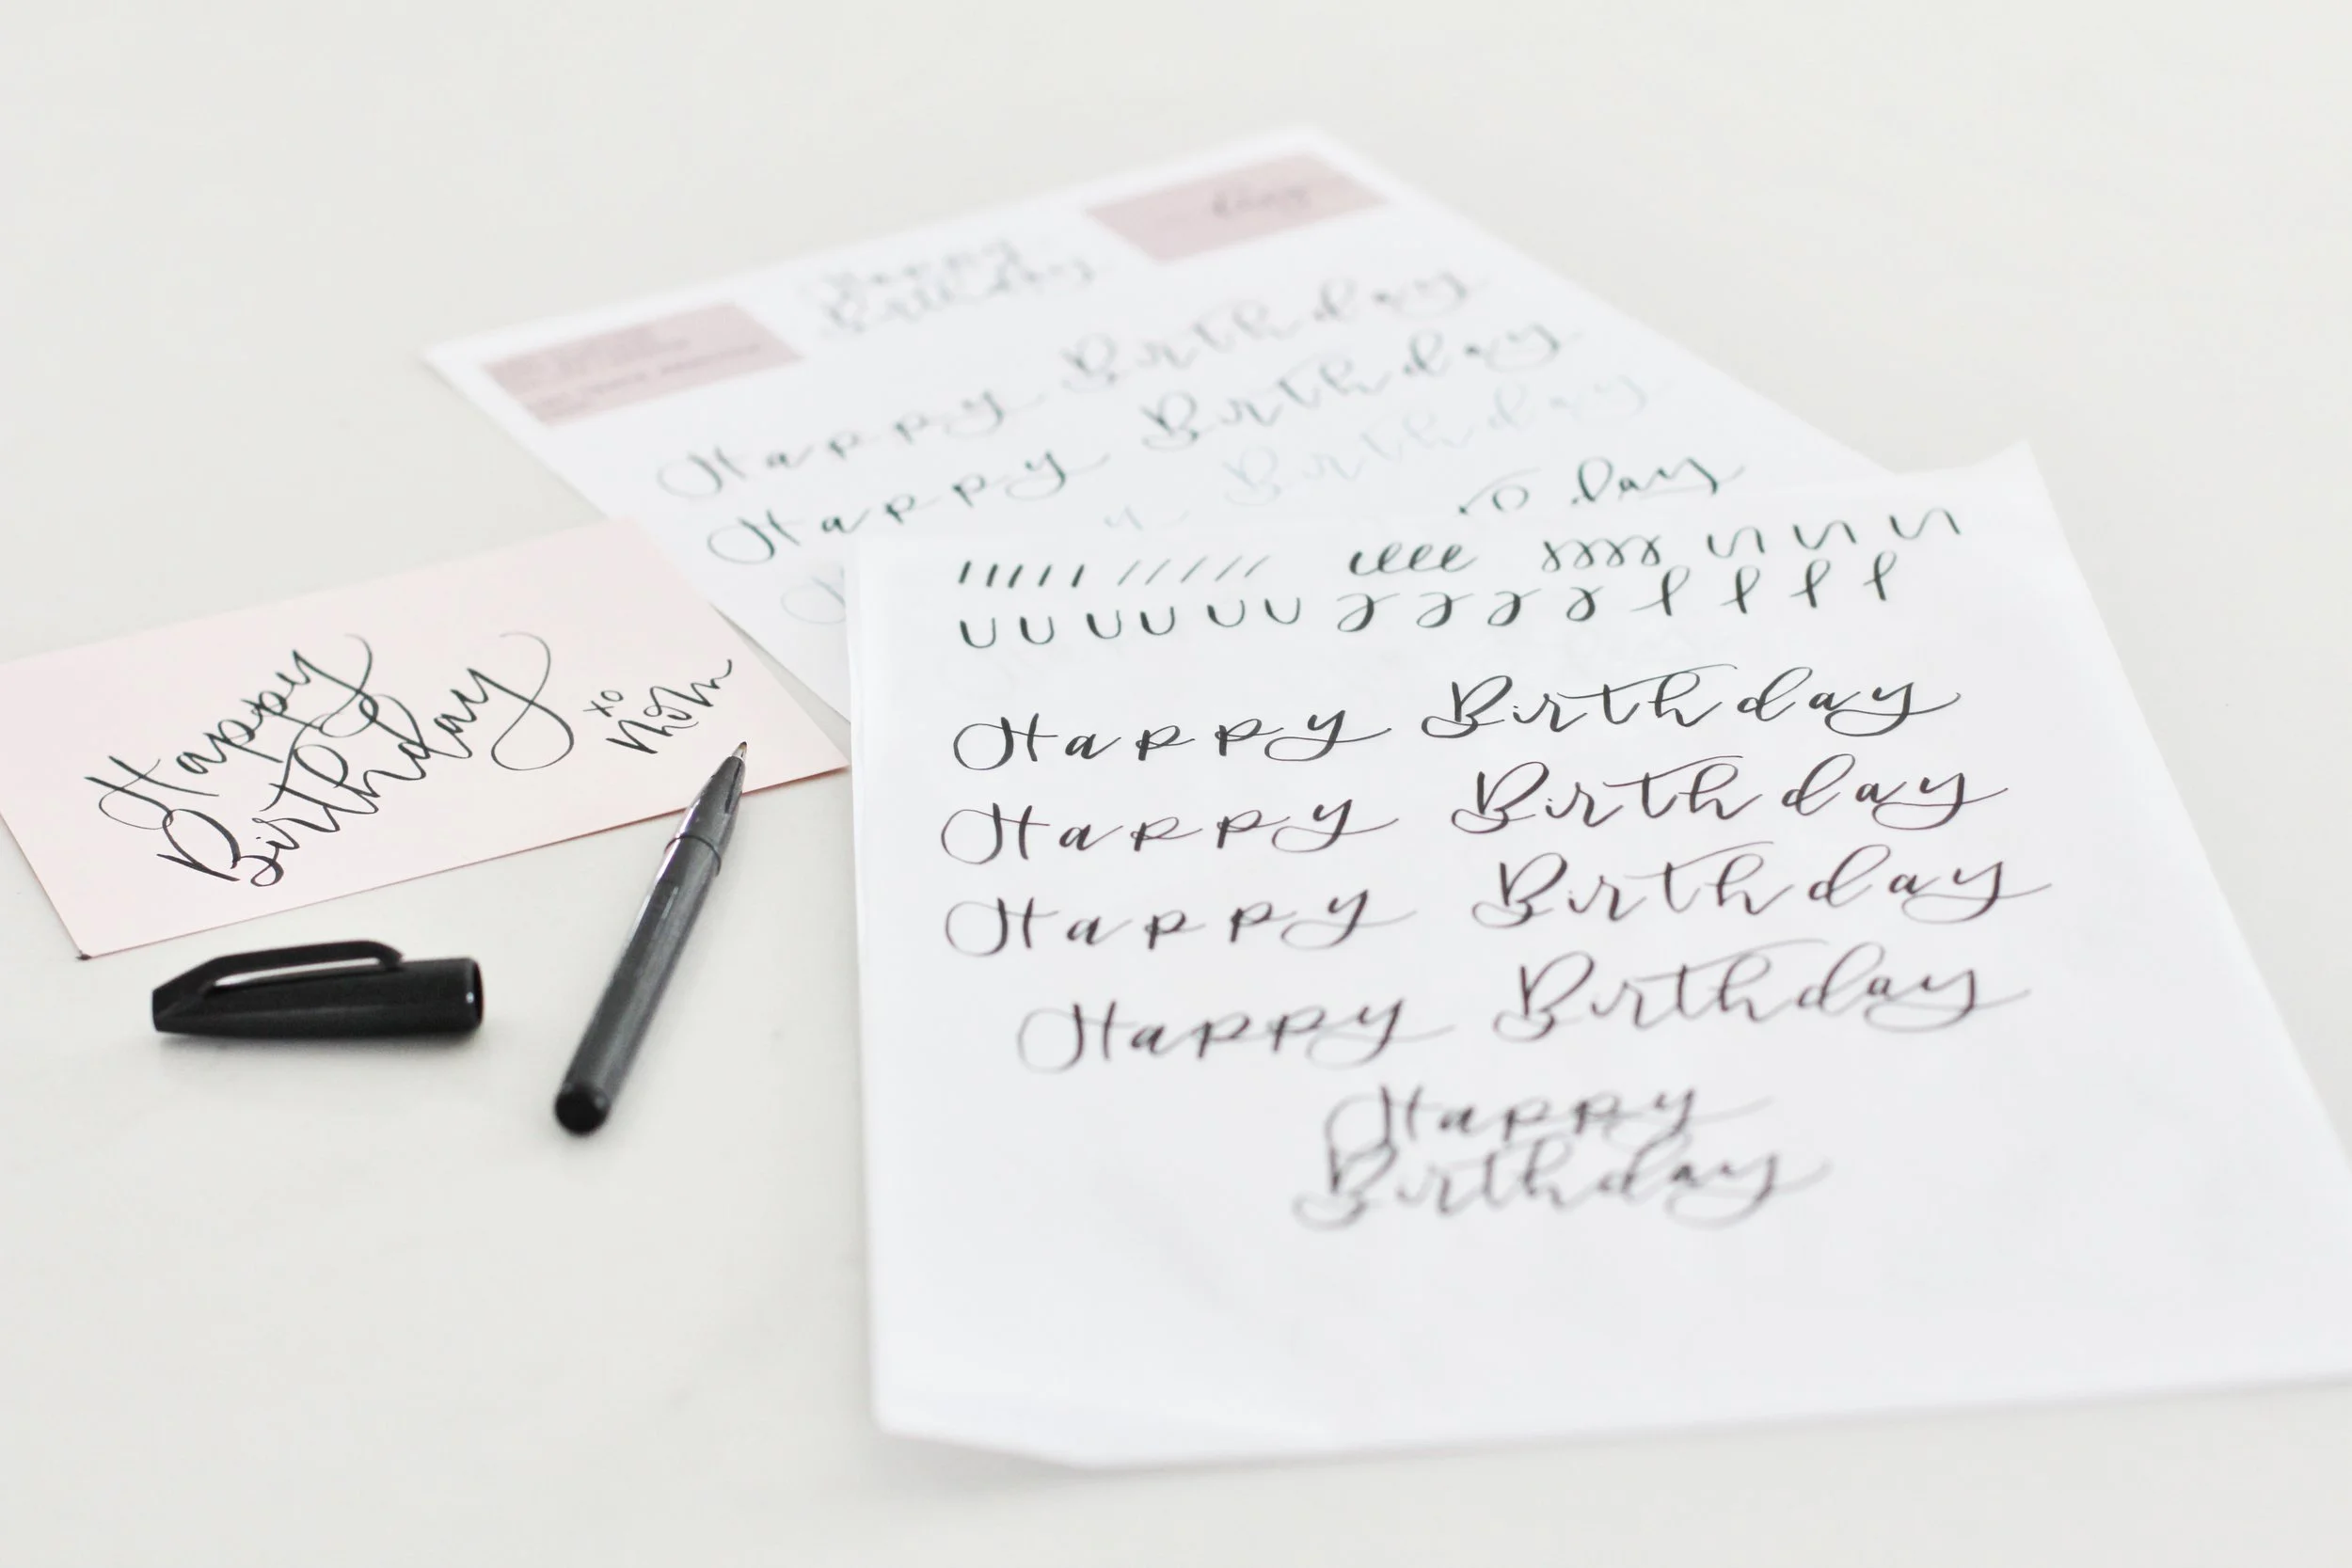 Happy
Birthday
xo
mom
Happy
Birthday
Happy Birthday
Happy Birthday
Birthday
day
Happy Birthday
Happy Birthday
Happy Birthday
Happy Birthday
Happy
Birthday